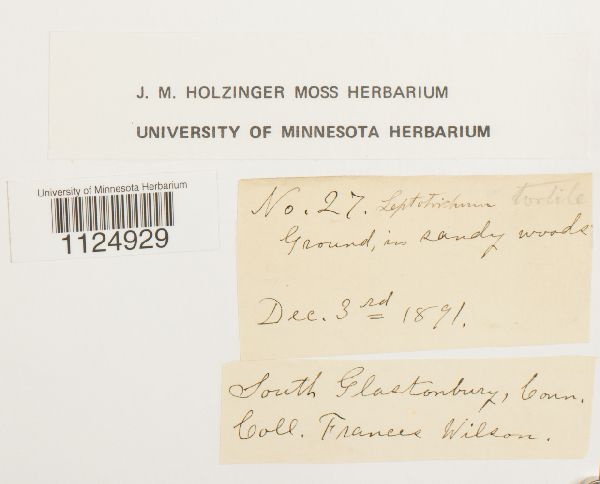 J. M. HOLZINGER MOSS HERBARIUM
UNIVERSITY OF MINNESOTA HERBARIUM
University of Minnesota Herbarium
1124929
No. 27. Leptotrichum tortile
Ground, in sandy woods
Dec. 3rd 1891.
South Glastonbury, Conn.
Coll. Frances Wilson.